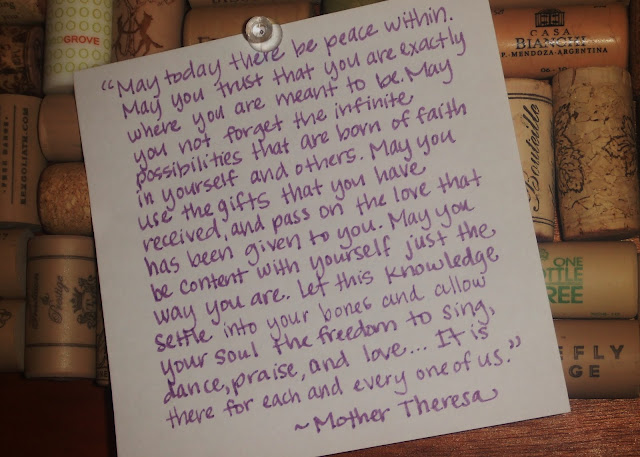 "May today there be peace within.
May you trust that you are exactly
where you are meant to be. May
you not forget the infinite
possibilities that are born of faith
in yourself and others. May you
use the gifts that you have
received, and pass on the love that
has been given to you. May you
be content with yourself just the
way you are. Let this knowledge
settle into your bones and allow
your soul the freedom to sing,
dance, praise, and love... It is
there for each and every one of us."
~Mother Theresa
GROVE
CASA
BIANCHI
P. MENDOZA-ARGENTINA
FREE RANGE
REXGOLIATH.COM
ONE
TTLE
REE
EFLY
GE